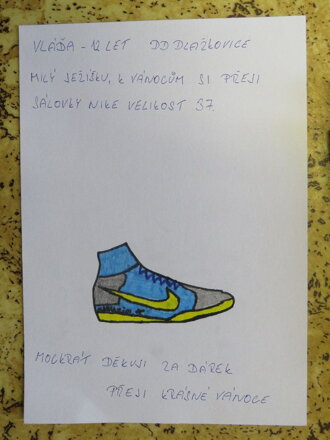 VLÁĎA - 12 LET DD DLAŽKOVICE
MILÝ JEŽÍŠKU, K VÁNOCŮM SI PŘEJI
SÁLOVKY NIKE VELIKOST 37.
MOCKRÁT DĚKUJI ZA DÁREK
PŘEJI KRÁSNÉ VÁNOCE